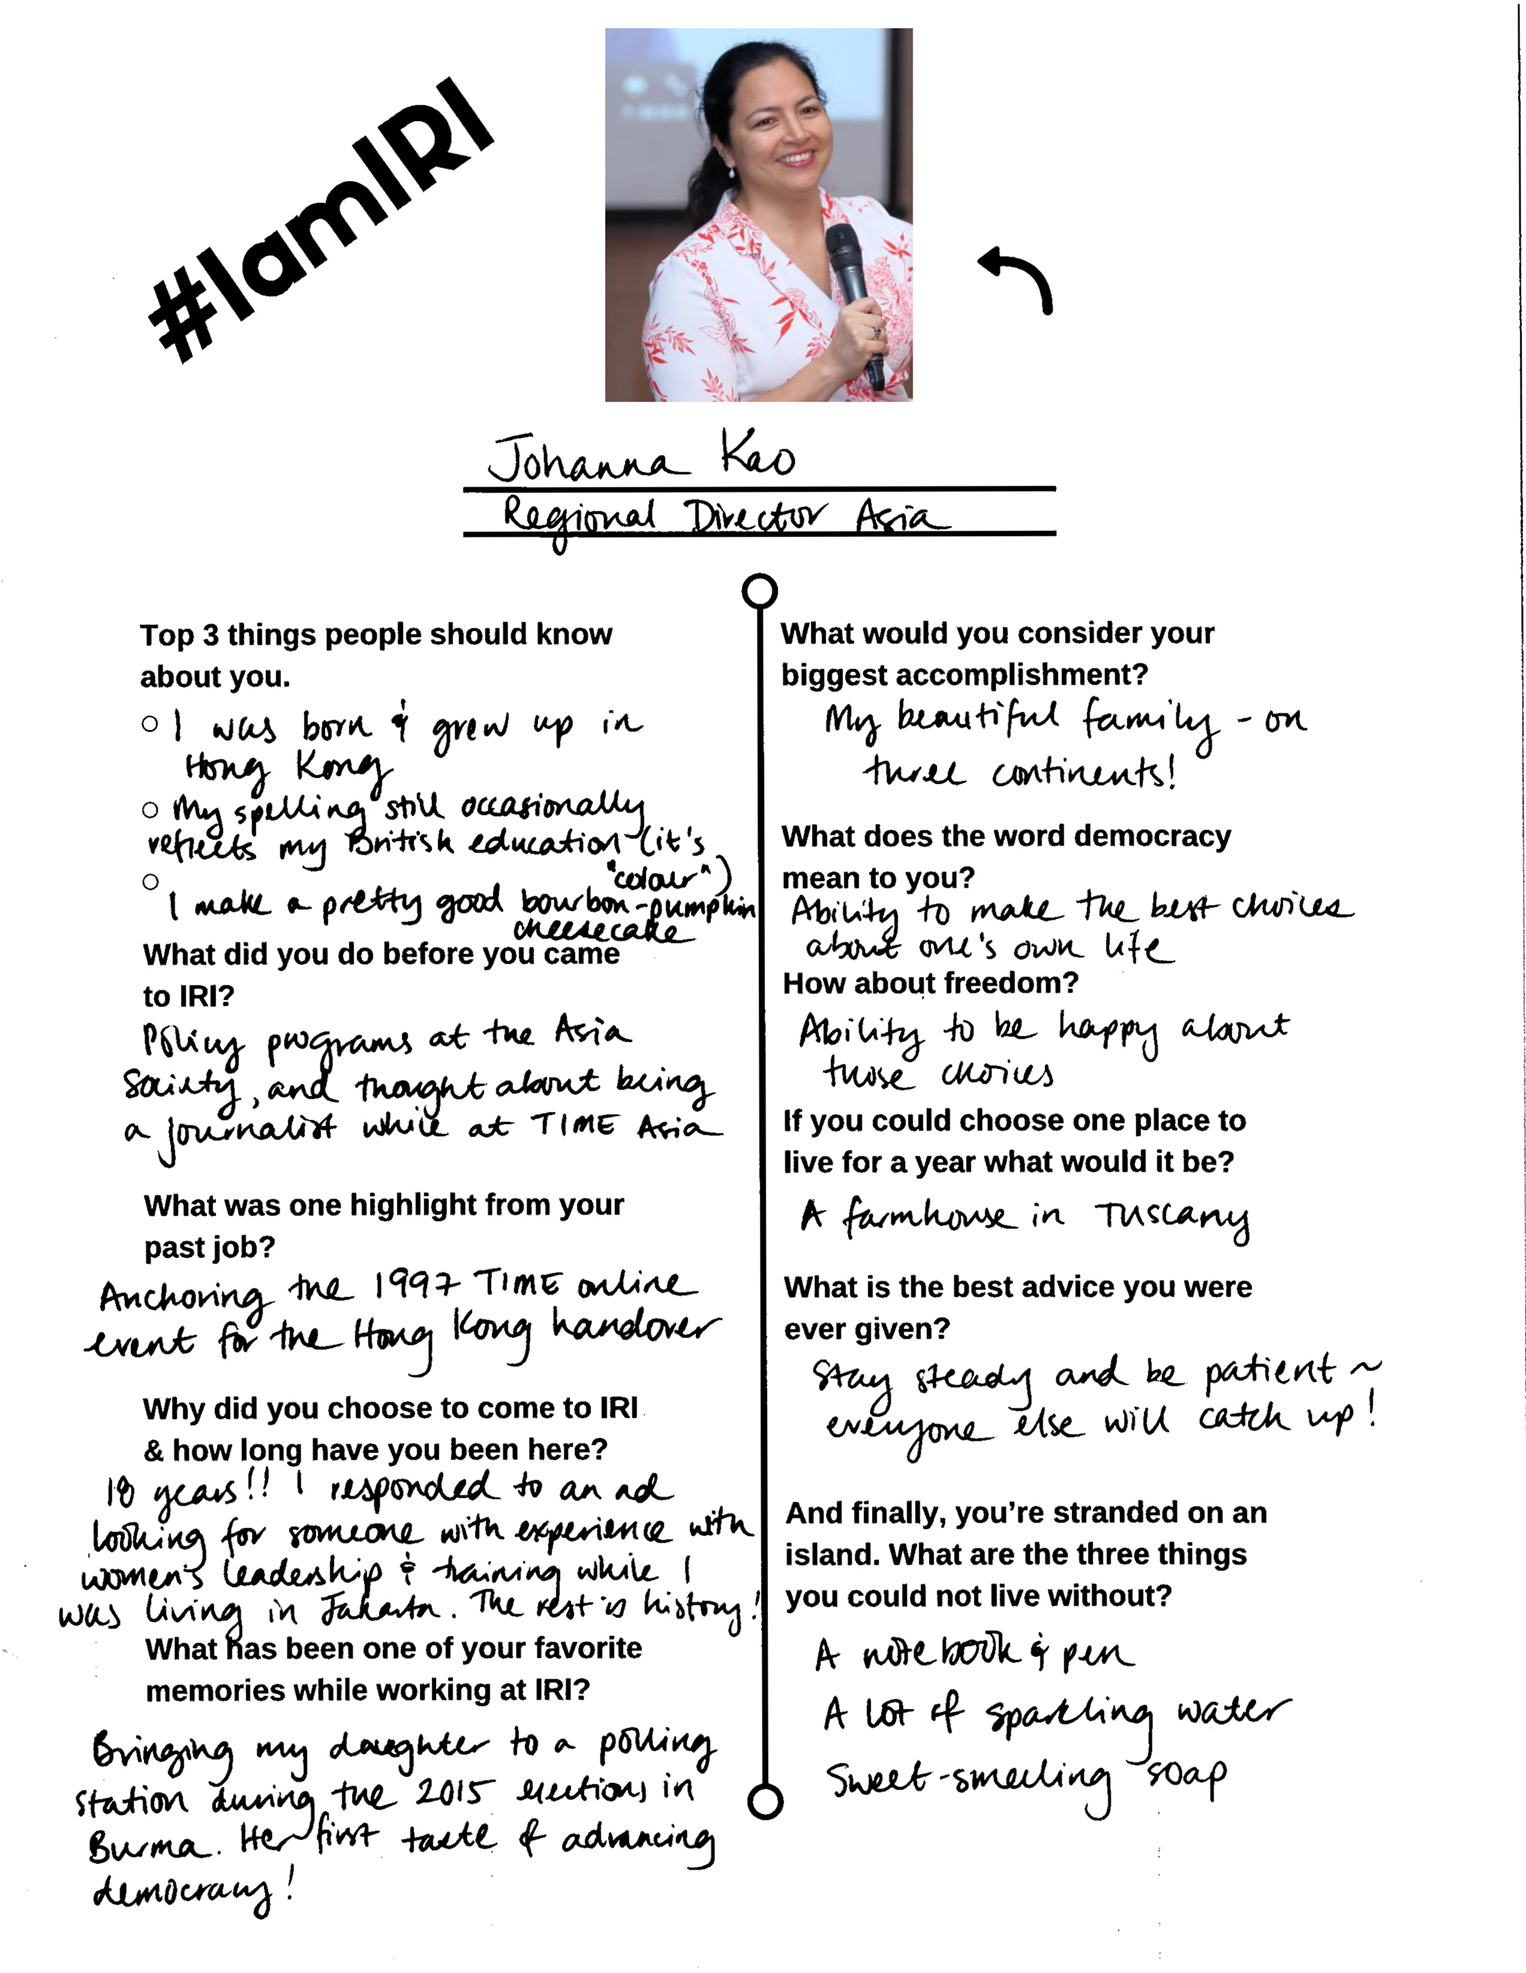 #IamIRI
Johanna Kao
Regional Director Asia
Top 3 things people should know
about you.
I was born & grew up in
Hong Kong
My spelling still occasionally
reflects my British education (it's
"colour")
I make a pretty good bourbon-pumpkin
cheesecake
What did you do before you came
to IRI?
Policy programs at the Asia
Society, and thought about being
a journalist while at TIME Asia
What was one highlight from your
past job?
Anchoring the 1997 TIME online
event for the Hong Kong handover
Why did you choose to come to IRI
& how long have you been here?
18 years!! I responded to an ad
looking for someone with experience with
women's leadership & training while I
was living in Jakarta. The rest is history!
What has been one of your favorite
memories while working at IRI?
Bringing my daughter to a polling
station during the 2015 elections in
Burma. Her first taste of advancing
democracy!
What would you consider your
biggest accomplishment?
My beautiful family - on
three continents!
What does the word democracy
mean to you?
Ability to make the best choices
about one's own life
How about freedom?
Ability to be happy about
those choices
If you could choose one place to
live for a year what would it be?
A farmhouse in Tuscany
What is the best advice you were
ever given?
Stay steady and be patient ~
everyone else will catch up!
And finally, you're stranded on an
island. What are the three things
you could not live without?
A notebook & pen
A lot of sparkling water
Sweet-smelling soap